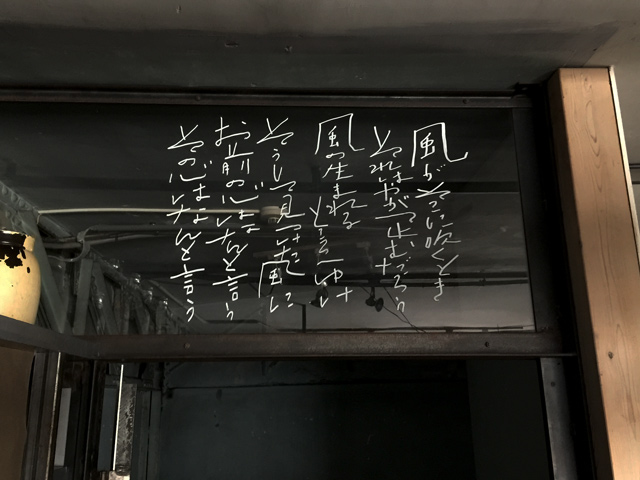 風がそこに吹くとき
それはやがて止むだろう
風の生まれる
そうして見つけた風に
お前の心はなんと言う
その心はなんと言う